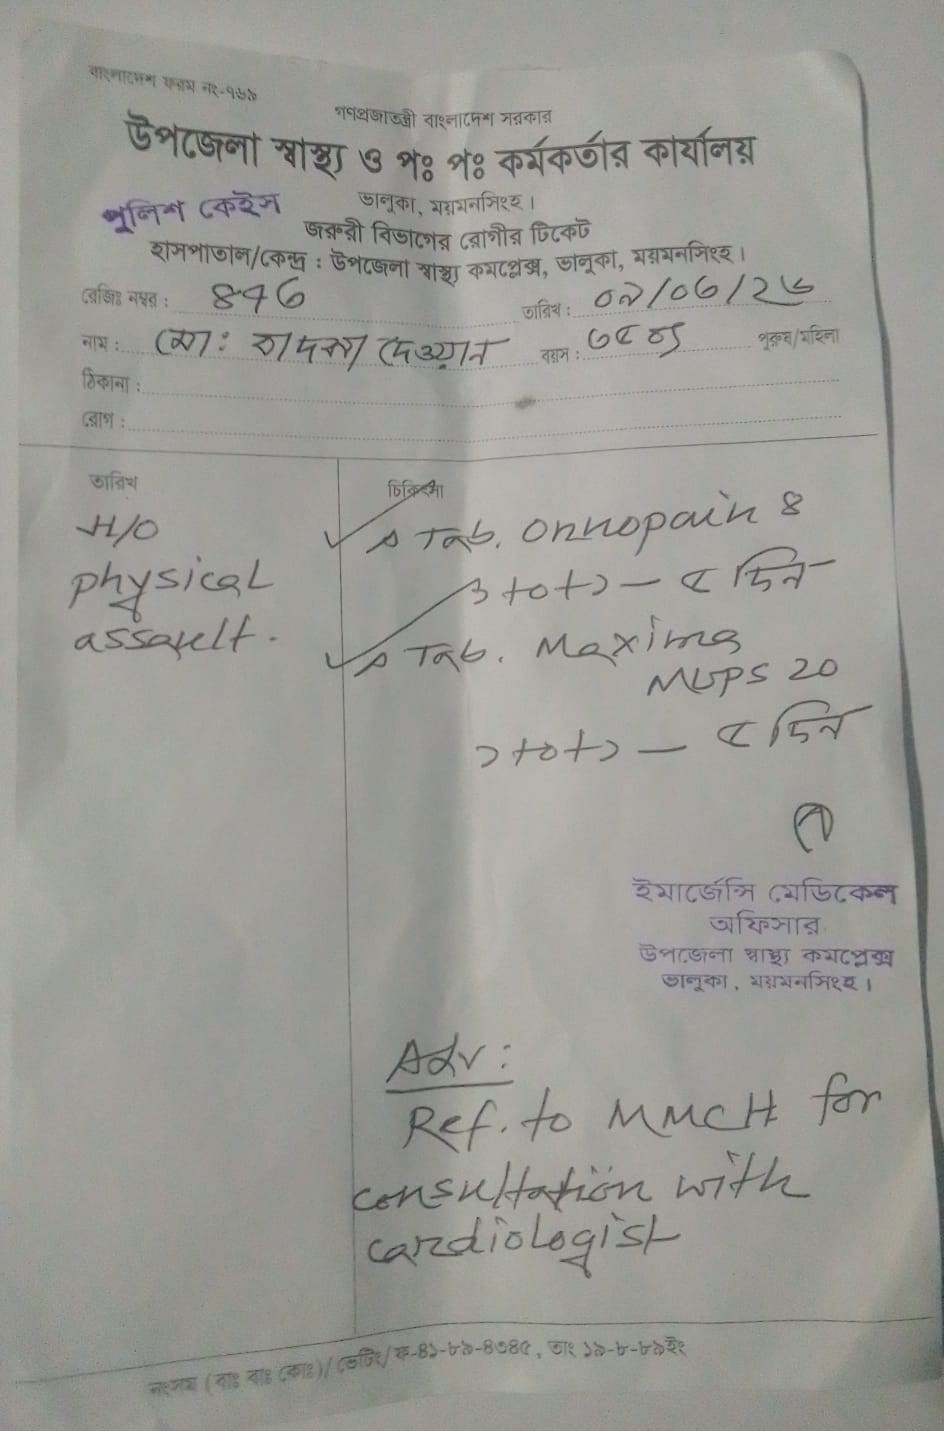 বাংলাদেশ ফরম নং-৭৬৯
গণপ্রজাতন্ত্রী বাংলাদেশ সরকার
উপজেলা স্বাস্থ্য ও পঃ পঃ কর্মকর্তার কার্যালয়
ভালুকা, ময়মনসিংহ।
পুলিশ কেইস
জরুরী বিভাগের রোগীর টিকেট
হাসপাতাল/কেন্দ্র : উপজেলা স্বাস্থ্য কমপ্লেক্স, ভালুকা, ময়মনসিংহ।
রেজিঃ নম্বর : 846 তারিখ : ০৯/০৬/২৬
নাম : মোঃ দেওয়ান বয়স : ৩৫ পুরুষ/মহিলা
ঠিকানা :
রোগ :
তারিখ
H/O
physical
assault.
চিকিৎসা
Tab. Onnopain 8
১+০+১ — ৫ দিন
Tab. Maxima
MUPS 20
১+০+১ — ৫ দিন
ইমার্জেন্সি মেডিকেল
অফিসার
উপজেলা স্বাস্থ্য কমপ্লেক্স
ভালুকা, ময়মনসিংহ।
Adv:
Ref. to MMCH for
consultation with
cardiologist